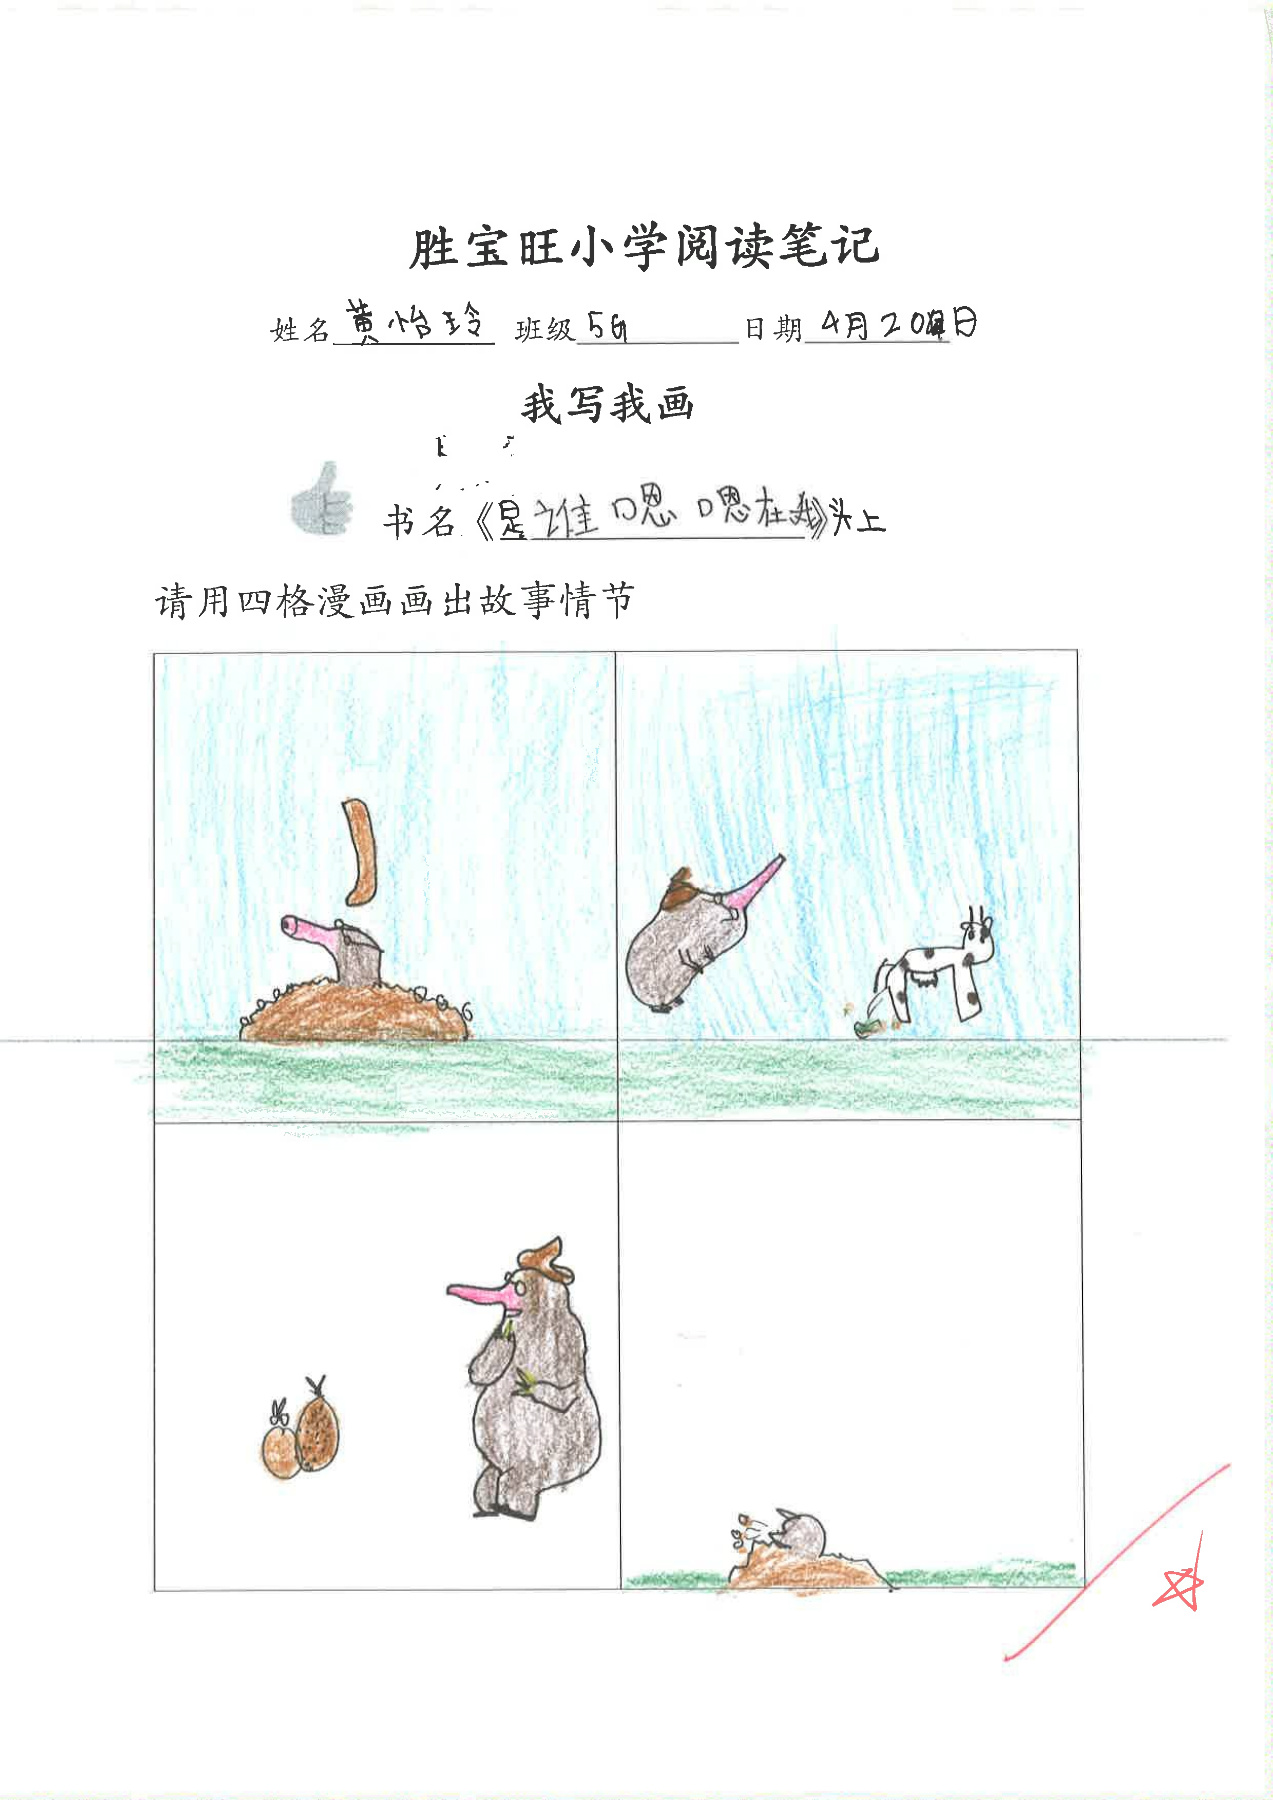 胜宝旺小学阅读笔记
姓名 黄怡玲 班级 5G 日期 4月20日
我写我画
书名《是谁嗯嗯在我》头上
请用四格漫画画出故事情节